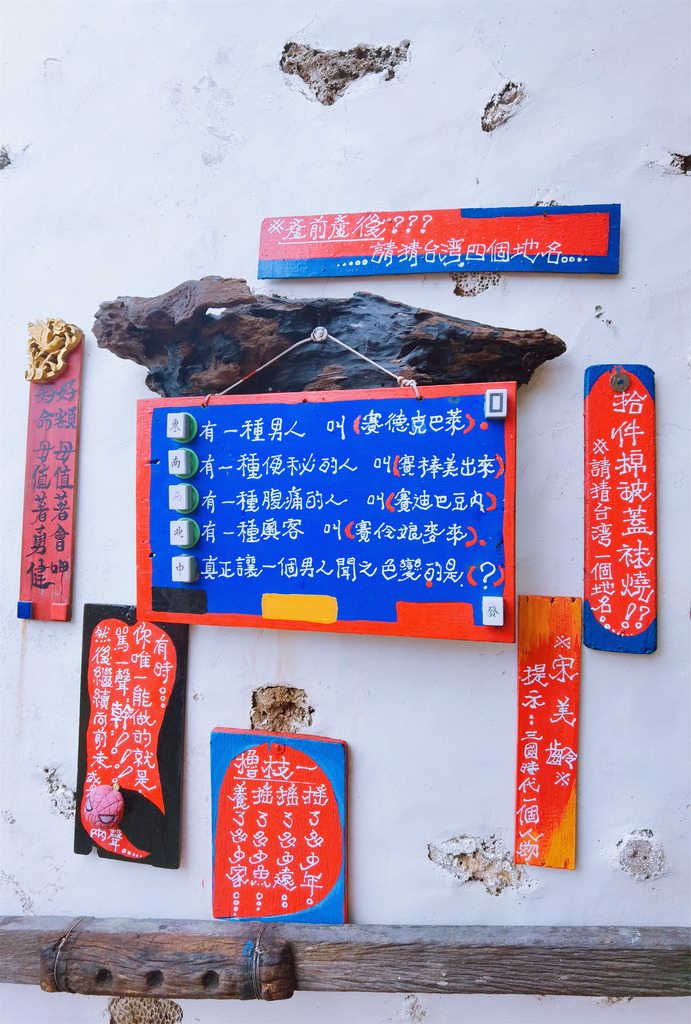 ※產前產後???
.....請猜台湾四個地名....
東 有一種男人 叫(賽德克巴萊).
南 有一種便秘的人 叫(賽棒美出來)
西 有一種腹痛的人 叫(賽迪巴豆内)
北 有一種奧客 叫(賽伶娘麥來).
中 真正讓一個男人聞之色變的是.(?)
發
好額 毋值著會呷
好命 毋值著勇健
拾件棉被蓋袜燒!!
※請猜台湾一個地名。
有時...
你唯一能做的就是
罵一聲.幹!!!
然後繼續向前走
兩聲....
※宋美齡※
提示:三國時代一個人物
擼枝一
搖了多少年。
搖了多少遠。
搖了多少魚
養了多少家